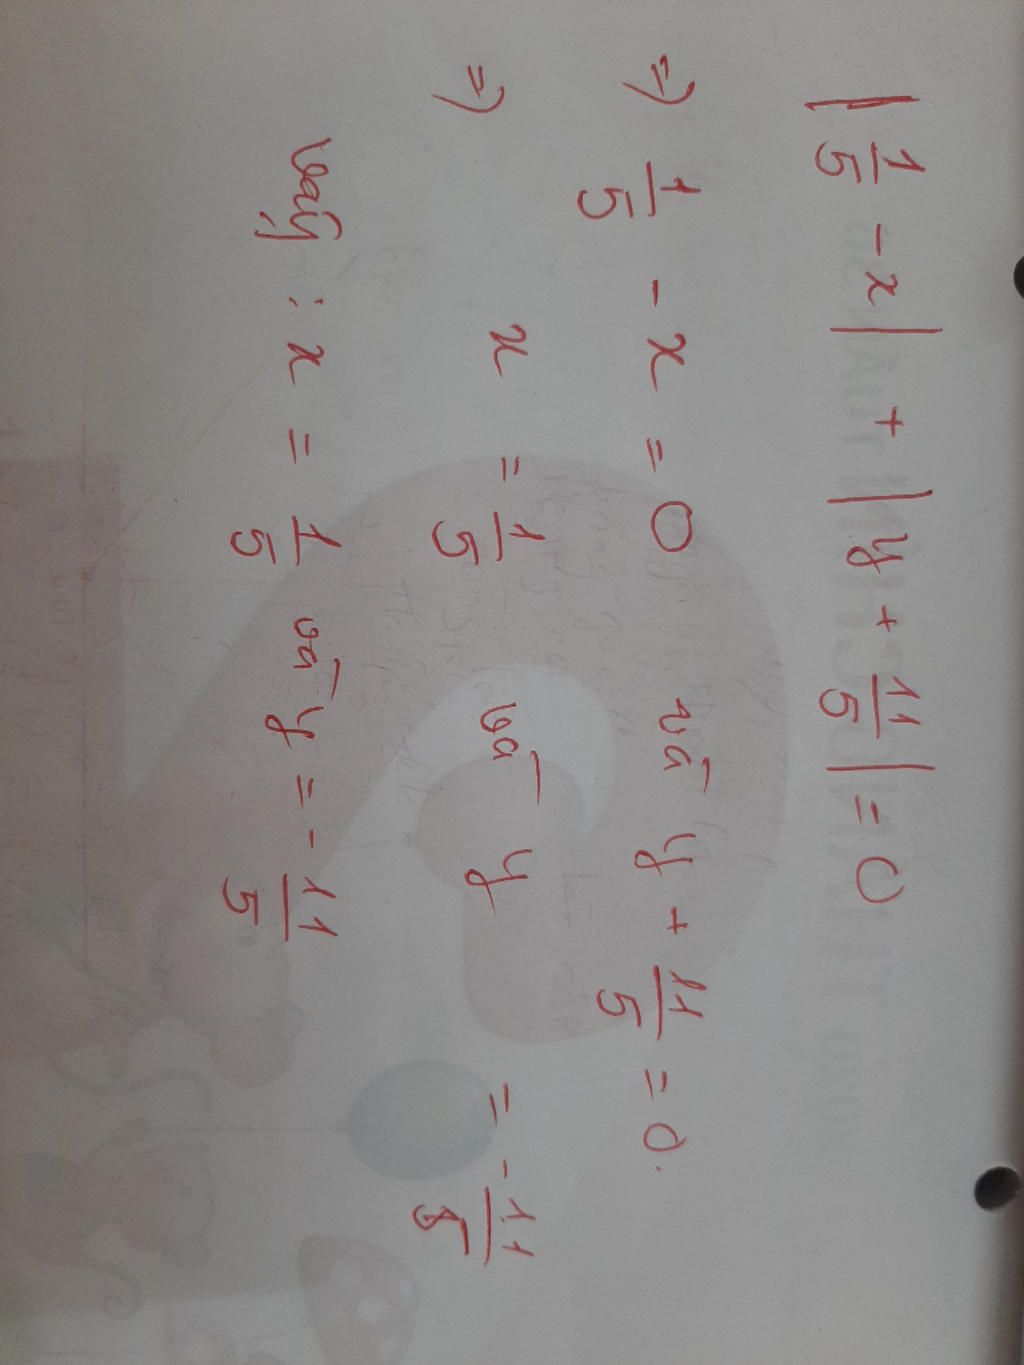 |1/5 - x| + |y + 11/5| = 0
=> 1/5 - x = 0 và y + 11/5 = 0.
=> x = 1/5 và y = - 11/5
Vậy : x = 1/5 và y = - 11/5